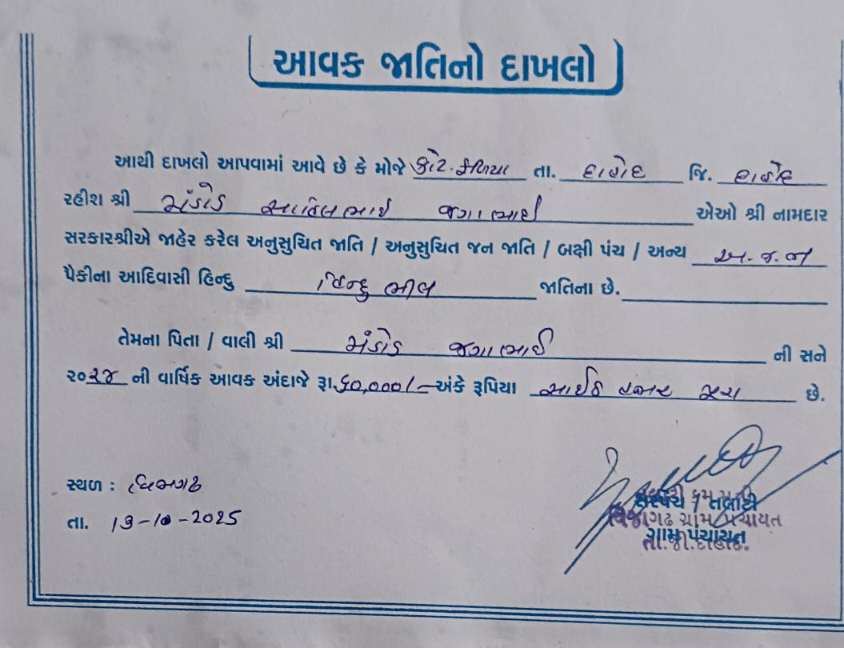 આવક જાતિનો દાખલો
આથી દાખલો આપવામાં આવે છે કે મોજે તા. દાહોદ જિ. દાહોદ
રહીશ શ્રી મંડોડ જગાભાઈ એઓ શ્રી નામદાર
સરકારશ્રીએ જાહેર કરેલ અનુસુચિત જાતિ / અનુસુચિત જન જાતિ / બક્ષી પંચ / અન્ય અ.જ.જા
પૈકીના આદિવાસી હિન્દુ હિન્દુ ભીલ જાતિના છે.
તેમના પિતા / વાલી શ્રી મંડોડ જગાભાઈ ની સને
૨૦૨૪ ની વાર્ષિક આવક અંદાજે રૂા.૬૦,૦૦૦/- અંકે રૂપિયા સાઈઠ હજાર પુરા છે.
સ્થળ :
તા. 13-10-2025
સરપંચ / તલાટી
વિજાગઢ ગ્રામ પંચાયત
ગ્રામ પંચાયત
તા.જી.દાહોદ.